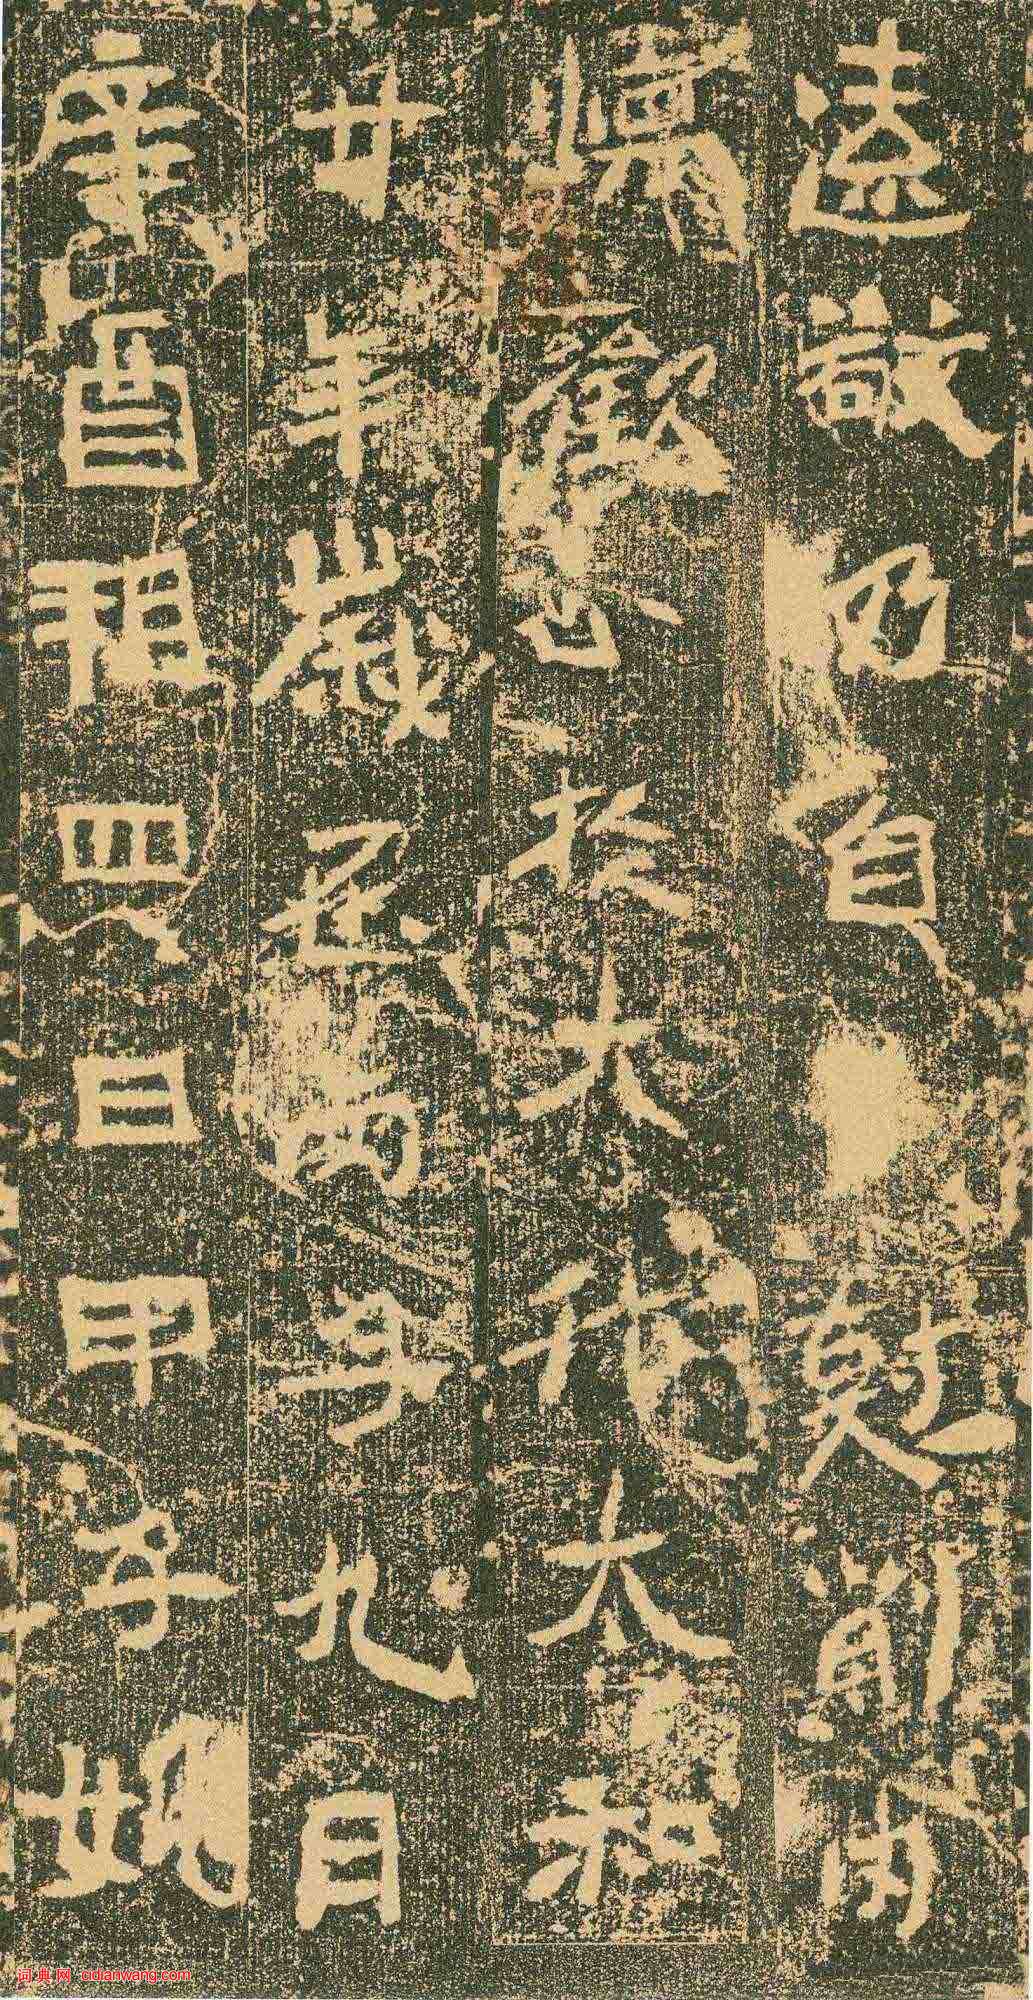 遠乃自削肉
歡於大代太和
廿年歲在丙子九月
辛酉朔四日甲子姚
词典网 cidianwang.com